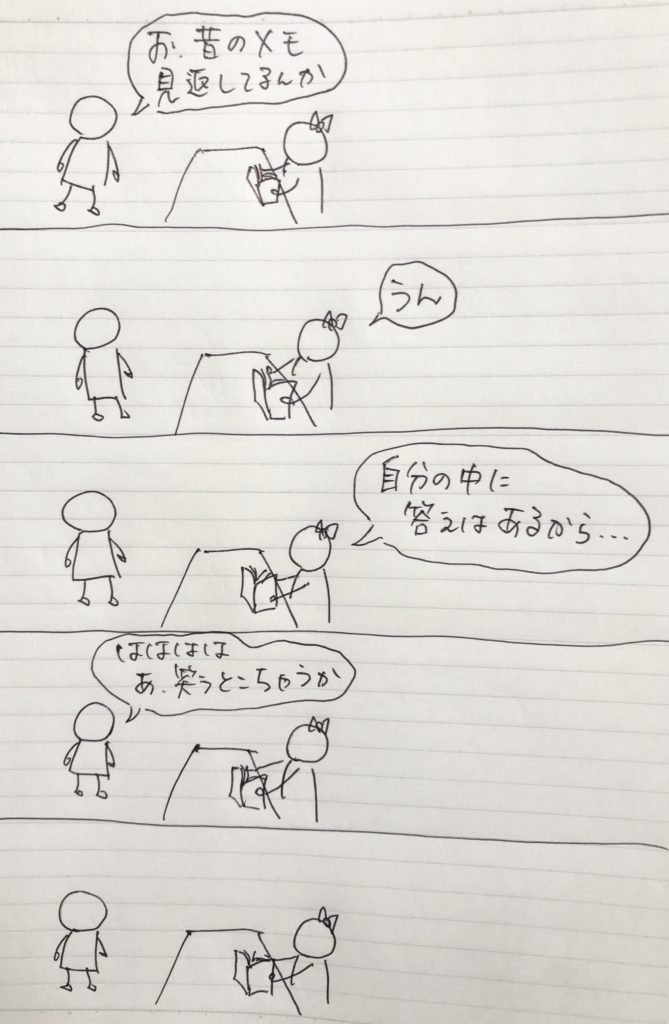 お、昔のメモ
見返してるんか
うん
自分の中に
答えはあるから…
はははは
あ、笑うとこちゃうか